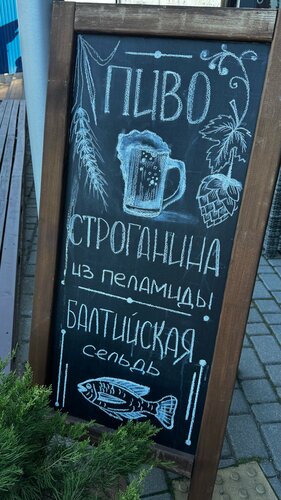 ПИВО
СТРОГАНИНА
ИЗ ПЕЛАМИДЫ
БАЛТИЙСКАЯ
СЕЛЬДЬ